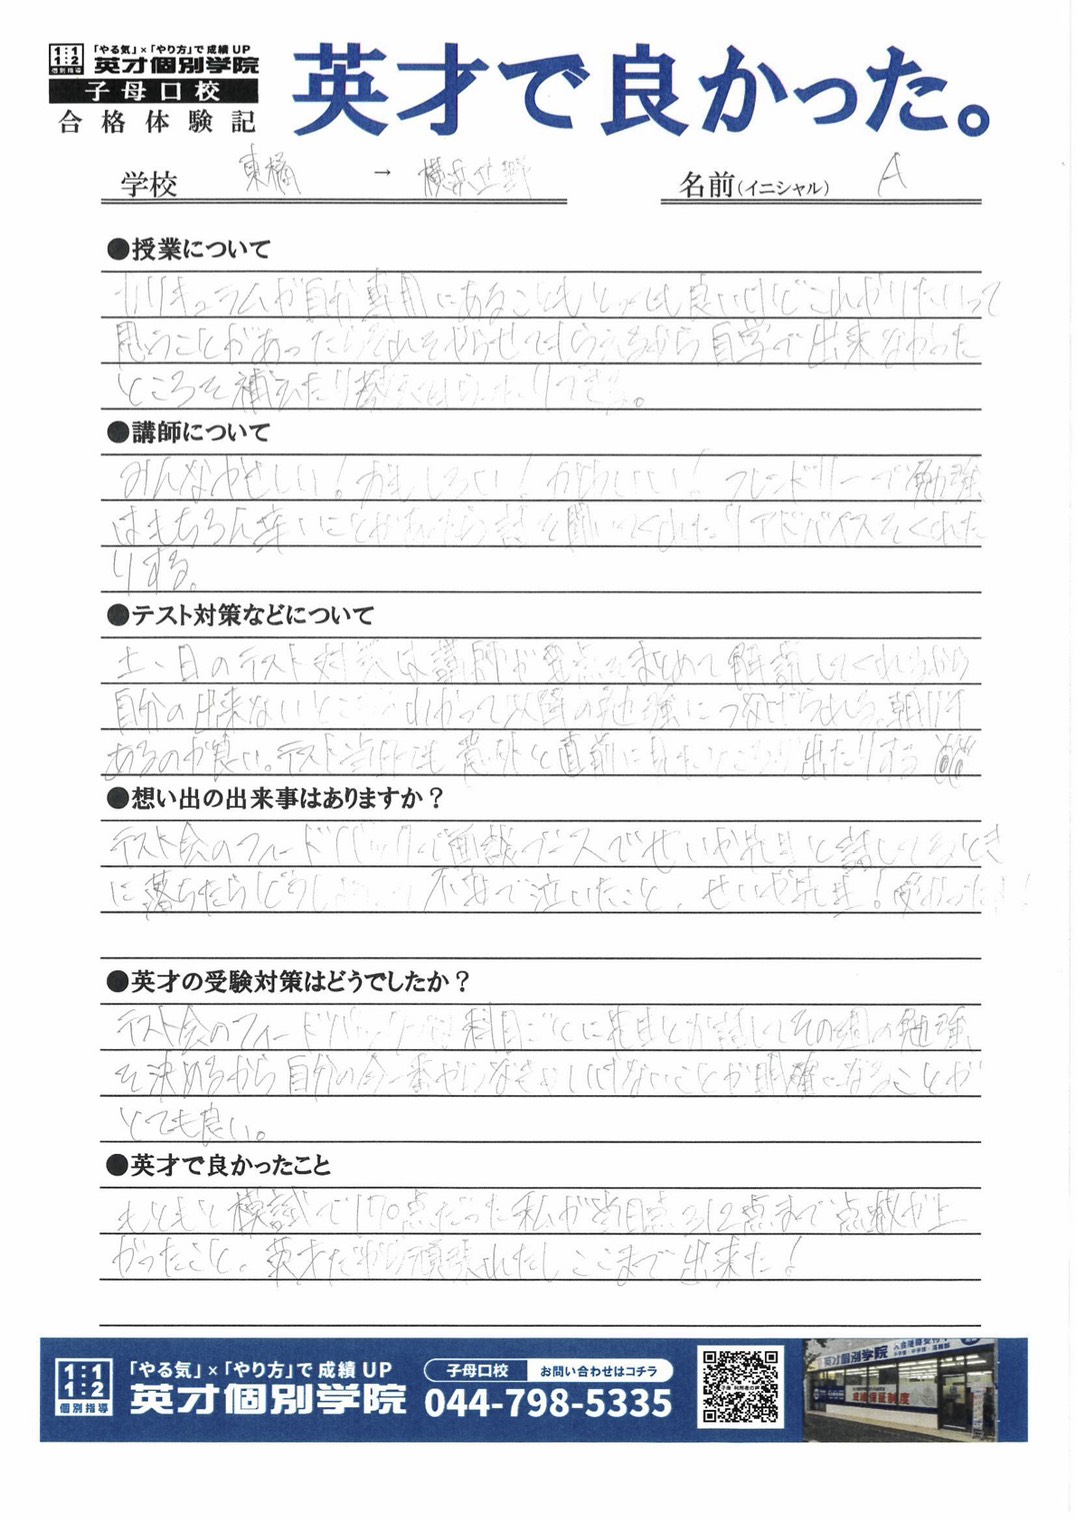 「やる気」×「やり方」で成績UP
1:1
1:2
個別指導
英才個別学院
子母口校
合格体験記
英才で良かった。
学校 東橘 → 横浜立野
名前(イニシャル) A
●授業について
カリキュラムが自分専用にあることもとっても良いけどこれやりたいって
思うことがあったらそれをやらせてもらえるから自学で出来なかった
ところを補えたり教えてもらったりできる。
●講師について
みんなやさしい!おもしろい!かわいい!フレンドリーで勉強
はもちろん辛いことがあったら話を聞いてくれたりアドバイスをくれた
りする。
●テスト対策などについて
土、日のテスト対策は講師が要点をまとめて解説してくれるから
自分の出来ないところがわかって以降の勉強につなげられる。朝
あるのが良い。テスト当日にも意外と直前に見たところが出たりする
●想い出の出来事はありますか?
テスト会のフィードバックで面談ブースでせいや先生と話してるとき
に落ちたらどうしようって不安で泣いたこと。せいや先生!
●英才の受験対策はどうでしたか?
テスト会のフィードバックでは科目ごとに先生とお話してその週の勉強
を決めるから自分の今一番やらなきゃいけないことが明確になることが
とても良い。
●英才で良かったこと
もともと模試で170点だった私が当日点312点まで点数が上
がったこと。英才だから頑張れたしここまで出来た!
1:1
1:2
個別指導
「やる気」×「やり方」で成績UP
英才個別学院
子母口校 お問い合わせはコチラ
044-798-5335
英才個別学院
成績保証制度